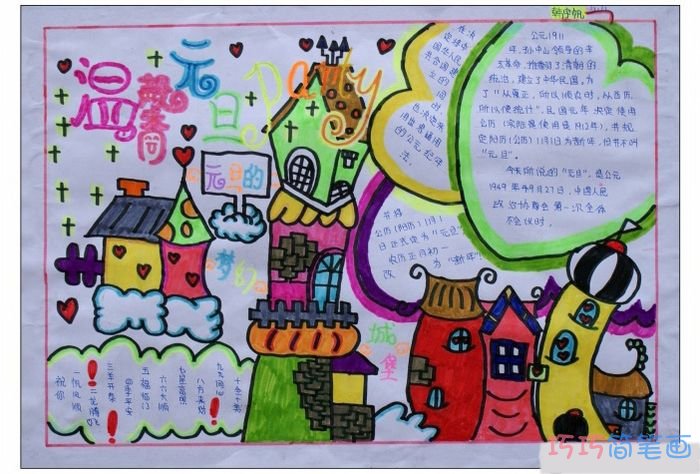 温馨
元旦
Party
元旦的
梦幻
城堡
在决
定建立中
华人民
共合国建
立的
同时
也决定采
用世界通用
的公元纪年
法。
公元1911
年，孙中山领导的辛
亥革命，推翻了清朝的
统治，建立了中华民国，为
了“从夏正，所以顺农时，从西历，
所以便统计”，民国元年决定使用
公历（实际是使用是1912年），并规
定阳历（公历）1月1日为新年，但并不叫
“元旦”。
今天所说的“元旦”，是公元
1949年9月27日，中国人民
政治协商会第一次全体
会议时，
并将
公历（阳历）1月1
日正式定为“元旦”，
农历正月初一
改 为“新年”。
祝你
一帆风顺
二龙腾飞
三羊开泰
四季平安
五福临门
六六大顺
七星高照
八方来财
九九同心
十全十美
巧巧简笔画